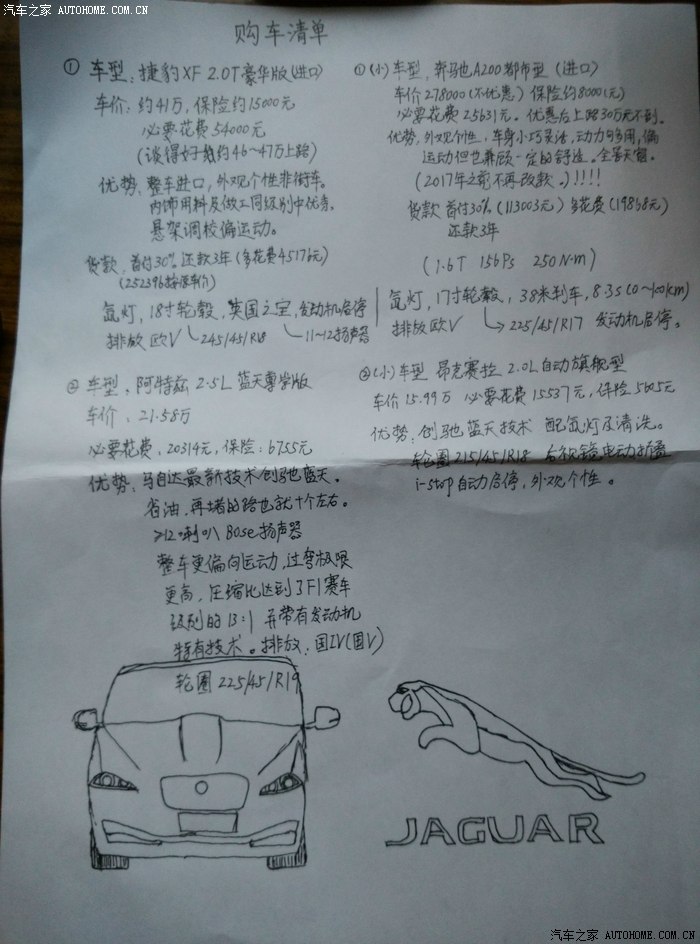 汽车之家 AUTOHOME.COM.CN
购车清单
① 车型：捷豹XF 2.0T豪华版(进口)
车价：约41万，保险约15000元
必要花费54000元
(谈得好于载约46~47万上路)
优势：整车进口，外观个性非街车。
内饰用料及做工同级别中优秀。
悬架调校偏运动。
货款：首付30% 还款3年(多花费45176元)
(252396按原车价)
氙灯，18寸轮毂，英国之宝，发动机启停
排放欧V 245/45/R18 11~12扬声器
② 车型：阿特兹 2.5L 蓝天尊学版
车价：21.58万
必要花费：20314元，保险：6755元
优势：马自达最新技术创驰蓝天。
省油，再堵的路也就十个左右。
≥12喇叭 Bose扬声器
整车更偏向运动，过弯极限
更高，压缩比达到了F1赛车
级别的13:1 并带有发动机
特有技术。排放：国IV(国V)
轮圈 225/45/R19
①(小)车型，奔马也A200都市型(进口)
车价278000(不优惠) 保险约8000(元)
必要花费25631元。优惠后上路30万元不到。
优势，外观个性，车身小巧灵活，动力够用，偏
运动但也兼顾一定的舒适。全景天窗。
(2017年之前不再改款。)!!!!
货款 首付30%(113003元) 多花费(19868元)
还款3年
(1.6T 156Ps 250N·m)
氙灯，17寸轮毂，38米刹车，8.3s(0~100km)
225/45/R17 发动机启停。
排放欧V
②(小)车型 昂克赛拉 2.0L自动旗舰型
车价15.99万 必要花费15537元，保险5605元
优势：创驰蓝天技术 配氙灯及清洗。
轮圈215/45/R18 后视镜电动折叠
i-stop自动启停，外观个性。
JAGUAR
汽车之家 AUTOHOME.COM.CN